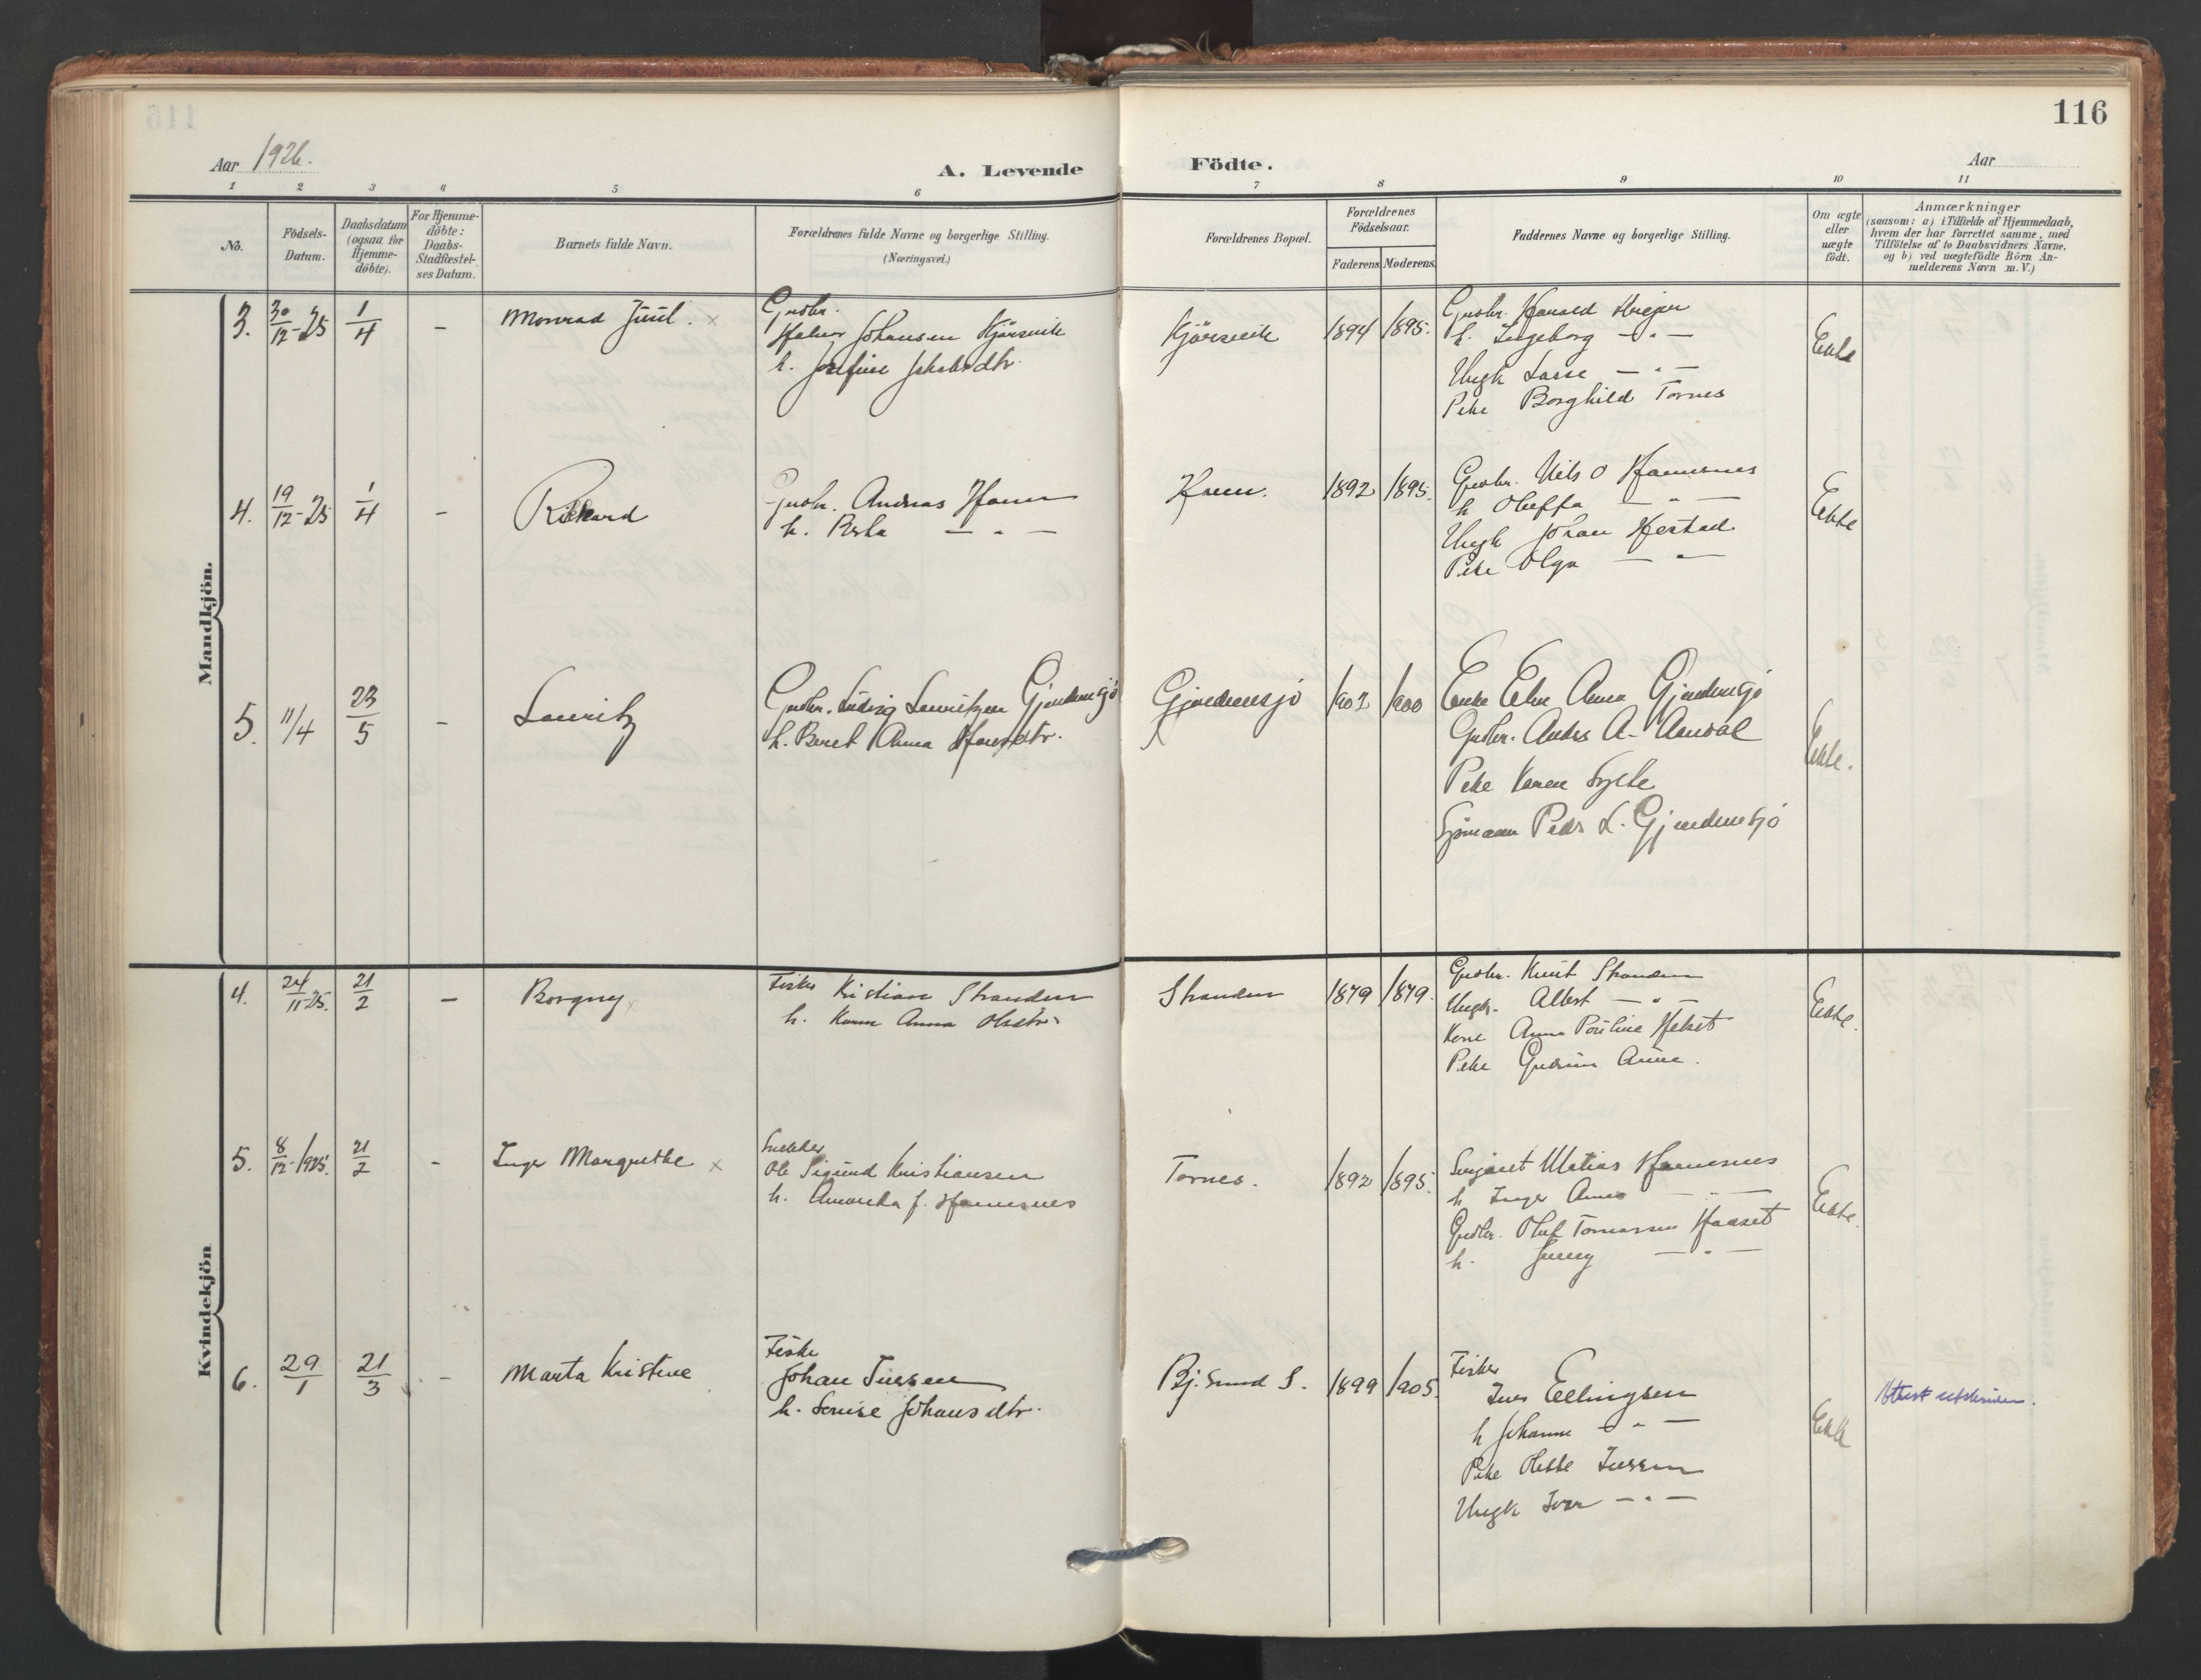 116
Aar 1926.
A. Levende Födte.
Aar
1 2 3 4 5 6 7 8 9 10 11
No.
Födsels-
Datum.
Daabsdatum
(ogsaa for
Hjemme-
döbte).
For Hjemme-
döbte:
Daabs-
Stadfæstel-
ses Datum.
Barnets fulde Navn.
Forældrenes fulde Navne og borgerlige Stilling.
(Næringsvei.)
Forældrenes Bopæl.
Forældrenes
Födselsaar.
Faderens Moderens
Faddernes Navne og borgerlige Stilling.
Om ægte
eller
uægte
födt.
Anmærkninger
(saasom: a) i Tilfælde af Hjemmedaab,
hvem der har forrettet samme, med
Tilföielse af to Daabsvidners Navne,
og b) ved uægtefödte Börn An-
melderens Navn m. V.)
Mandkjön.
3. 30/12-25 1/4 – Monrad Juul. x
Gubr.
Halvor Johansen Kjörsvik
h. Josefine Jakobsdtr.
Kjörsvik 1894 1895.
Gubr. Harald
h. Ingeborg – " –
Ungk Lasse – " –
Pike Borghild Tornes
Ekte
4. 19/12-25 1/4 – Rikard
Gubr. Andreas Ham
h. Berta – " –
Ham. 1892 1895.
Gubr. Nils O Hamesnes
h Oluffa – " –
Ungk Johan Herstad
Pike Olga – " –
Ekte
5. 11/4 23/5 – Lauritz
Gubr. Ludvig Lauritzen Gjendemsjö
h. Beret Anna Hansdtr.
Gjendemsjö 1902 1900
Enke Elen Anna Gjendemsjö
Gubr. Anders A. Aandal
Pike Karen Sylte
Sjömann Peder L. Gjendemsjö
Ekte.
Kvindekjön
4. 24/11-25. 21/2 – Borgny x
Fisker Kristian Stranden
h. Karen Anna Olsdtr.
Stranden 1879 1879.
Gubr. Knut Stranden
Ungk. Albert – " –
Kone Anna Pauline
Pike Gudrun
Ekte.
5. 8/12-1925. 21/2 – Inger Margrethe x
Snekker
Ole Sigurd Kristiansen
h. Amanda f. Hamesnes
Tornes. 1892 1895.
Sersjant Matias Hamesnes
h Inger Anna – " –
Gubr. Oluf Tomassen
h. Jenny – " –
Ekte.
6. 29/1 21/3 – Marta Kristine
Fisker
Johan Iversen
h. Louise Johansdtr.
Bj.sund S. 1899 1905.
Fisker
Iver Ellingsen
h Johanne – " –
Pike Olette Iversen
Ungk Ivar – " –
Ekte
Attest utskreven.